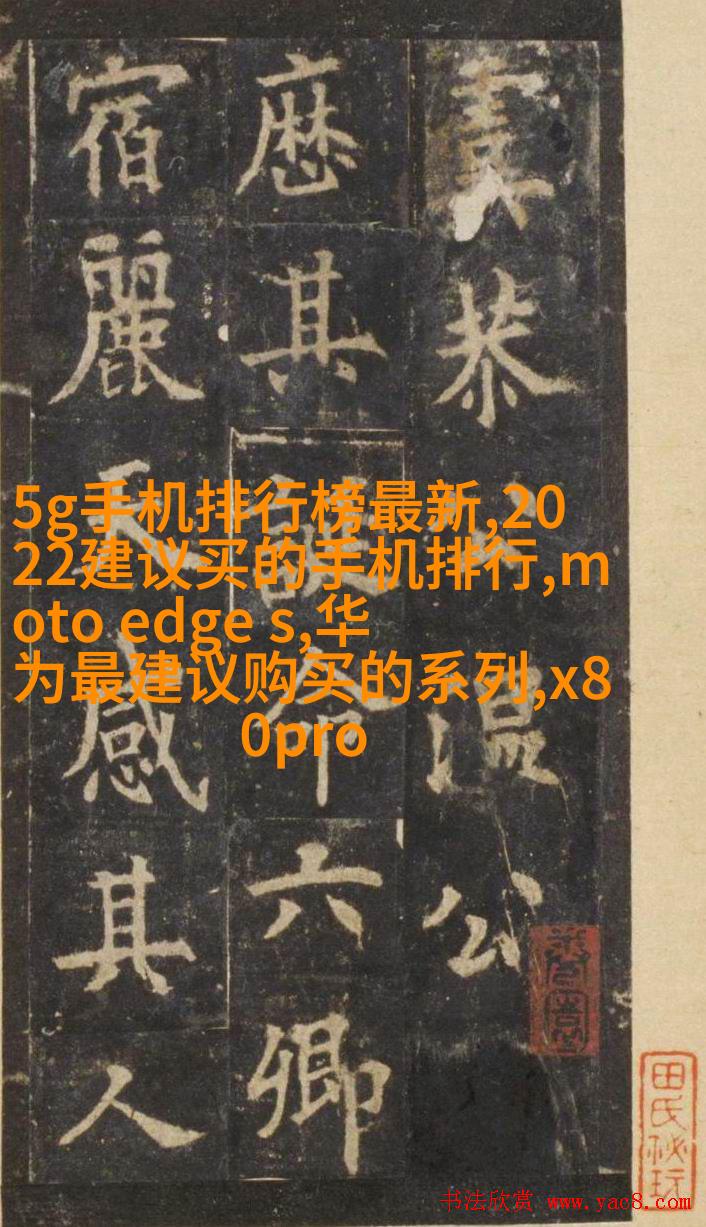 恭公温公
其誕命六卿
宿麗天感其人
5g手机排行榜最新,20
22建议买的手机排行,m
oto edge s,华
为最建议购买的系列,x8
0pro
田氏秘玩
书法欣赏 www.yac8.com